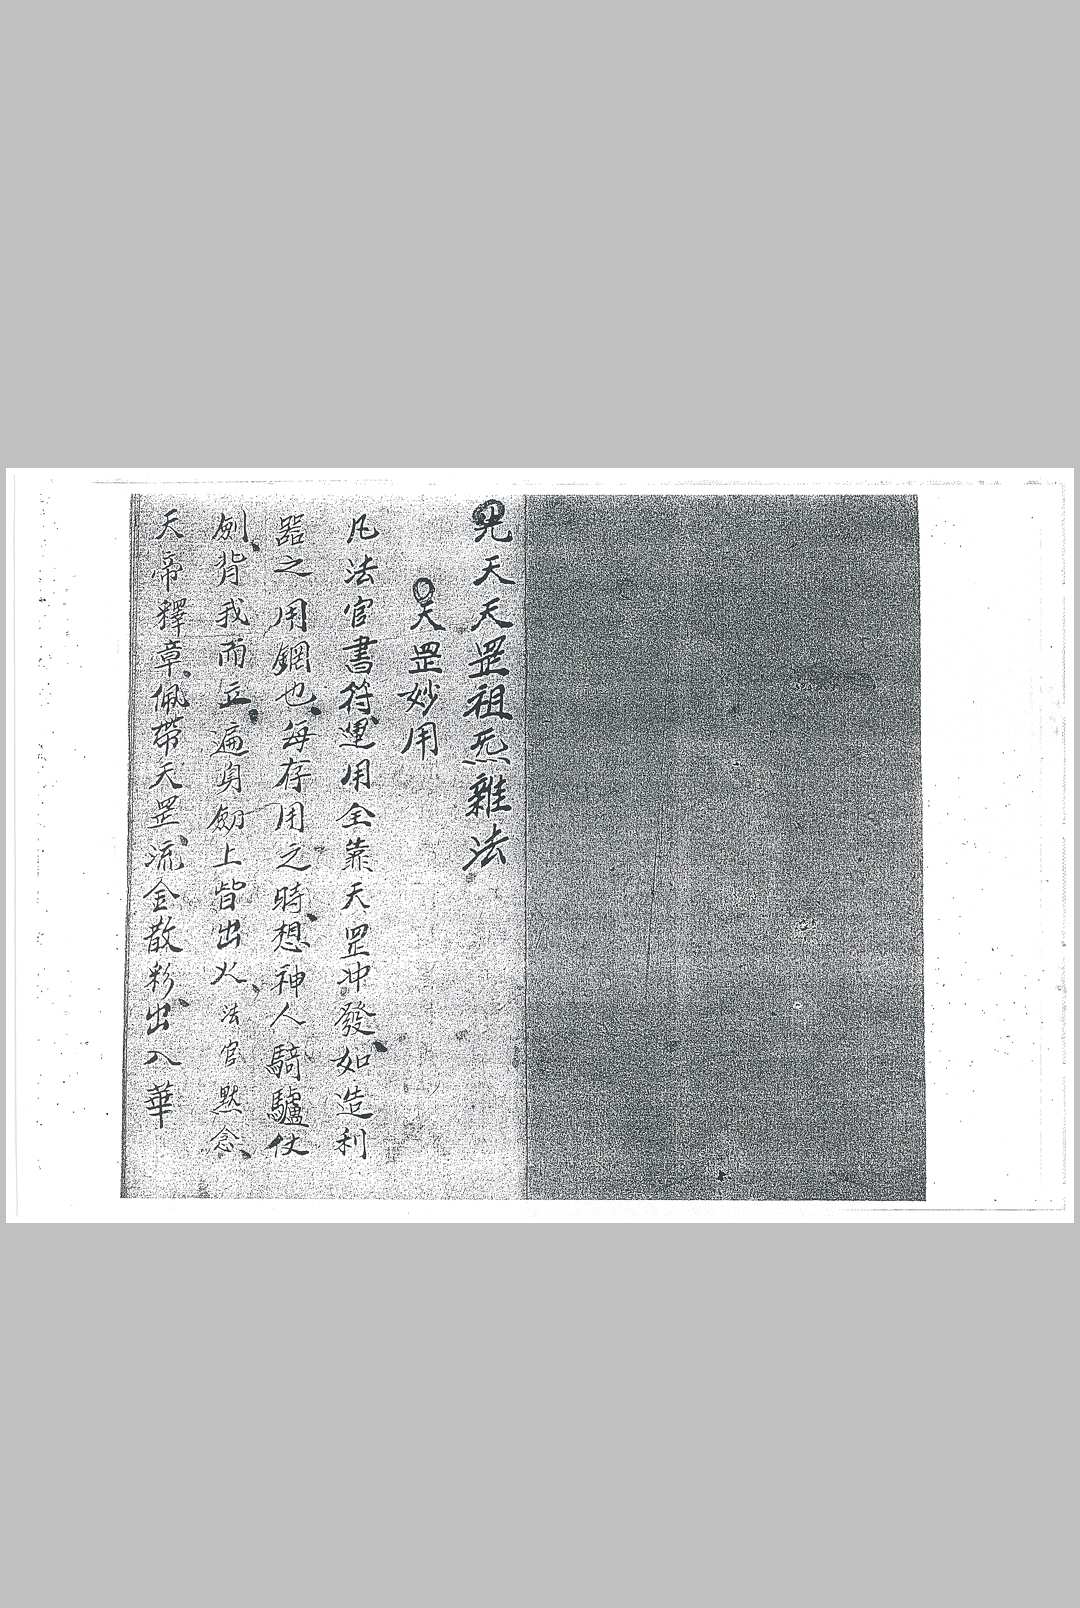 先天天罡祖炁雜法
天罡妙用
凡法官書符、運用全靠天罡冲發、如造利
器之用鋼也、每存用之時、想神人騎驢仗
劍、背我而立、遍身劒上皆出火、法官默念、
天帝釋章、佩帶天罡、流金散彩、出入華